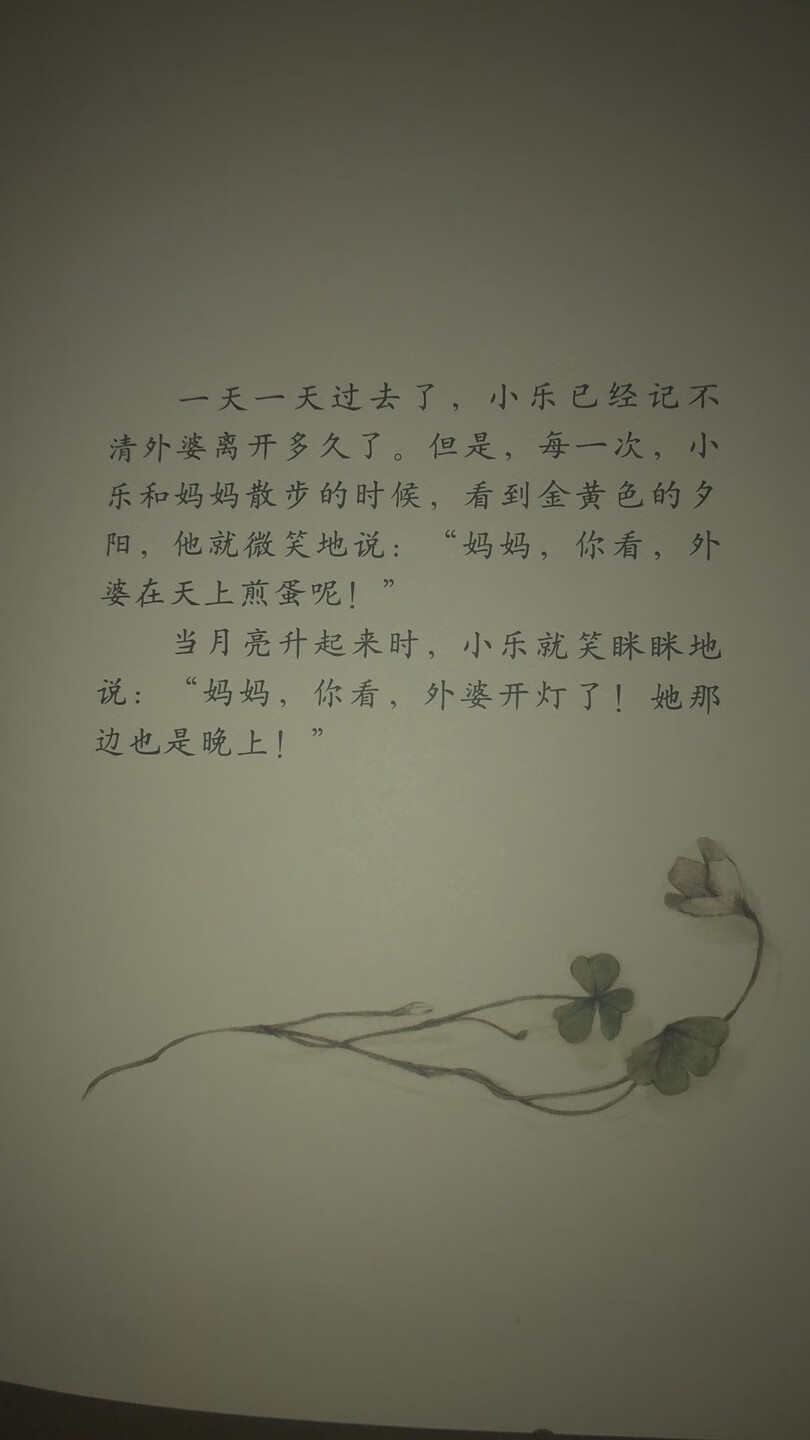 一天一天过去了，小乐已经记不
清外婆离开多久了。但是，每一次，小
乐和妈妈散步的时候，看到金黄色的夕
阳，他就微笑地说：“妈妈，你看，外
婆在天上煎蛋呢！”
当月亮升起来时，小乐就笑眯眯地
说：“妈妈，你看，外婆开灯了！她那
边也是晚上！”